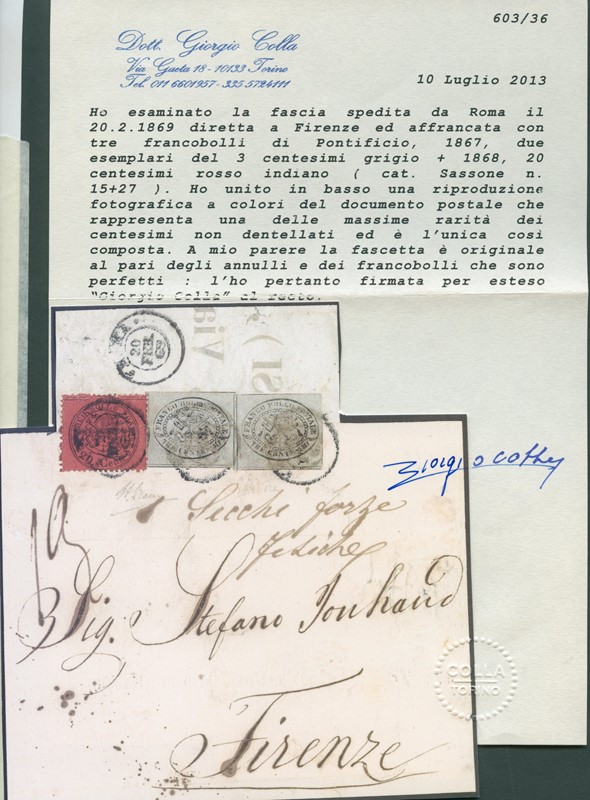 603/36
Dott. Giorgio Colla
Via Gaeta 18 - 10133 Torino
Tel. 011 6601957 - 335 5724111
10 Luglio 2013
Ho esaminato la fascia spedita da Roma il
20.2.1869 diretta a Firenze ed affrancata con
tre francobolli di Pontificio, 1867, due
esemplari del 3 centesimi grigio + 1868, 20
centesimi rosso indiano ( cat. Sassone n.
15+27 ). Ho unito in basso una riproduzione
fotografica a colori del documento postale che
rappresenta una delle massime rarità dei
centesimi non dentellati ed è l'unica così
composta. A mio parere la fascetta è originale
al pari degli annulli e dei francobolli che sono
perfetti : l'ho pertanto firmata per esteso
"Giorgio Colla" al recto.
ROMA
20
FEB
69
FRANCO BOLLO POSTALE
FRANCO BOLLO POSTALE
Giorgio Colla
Secchi forze
fisiche
19
Sig. Stefano Jouhaud
Firenze
COLLA
TORINO